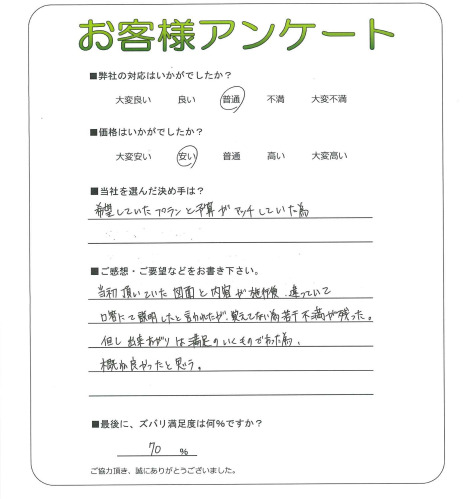 お客様アンケート
■弊社の対応はいかがでしたか？
大変良い 良い 普通 不満 大変不満
■価格はいかがでしたか？
大変安い 安い 普通 高い 大変高い
■当社を選んだ決め手は？
希望していたプランと予算がマッチしていた為
■ご感想・ご要望などをお書き下さい。
当初頂いていた図面と内容が施行後、違っていて
口答にて説明したと言われたが、覚えてない為若干不満が残った。
但し出来あがりは満足のいくものであった為、
概ね良かったと思う。
■最後に、ズバリ満足度は何％ですか？
70 %
ご協力頂き、誠にありがとうございました。